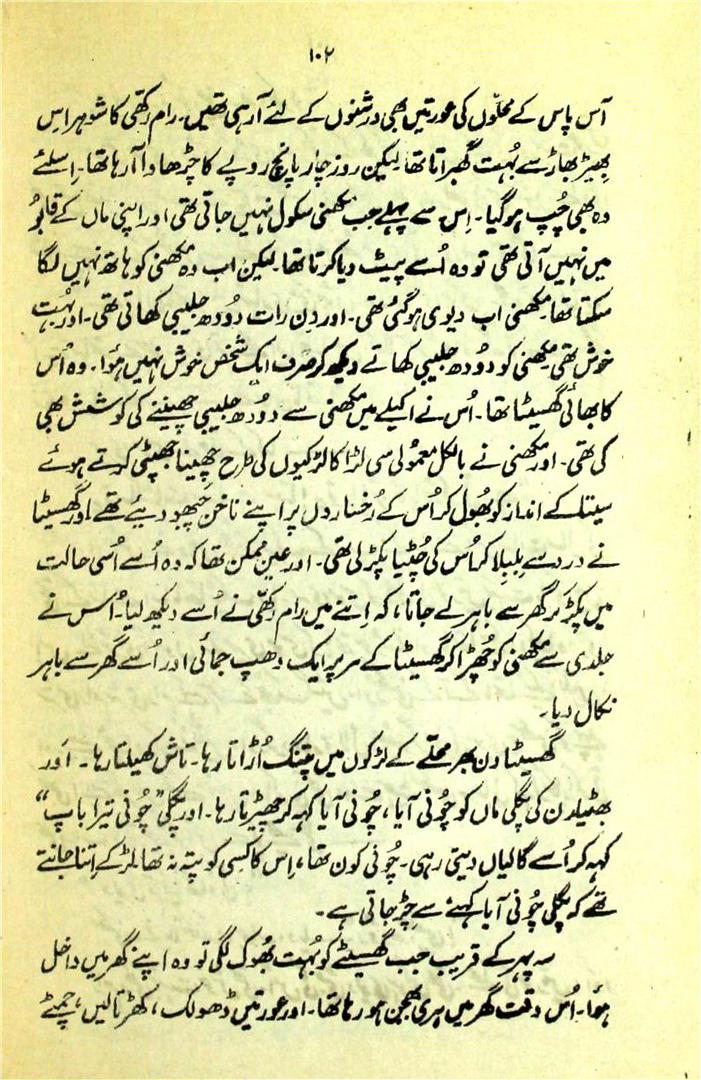 ۱۰۲
آس پاس کے محلّوں کی عورتیں بھی درشنوں کے لئے آرہی تھیں۔ رام رکھّی کا شوہر اِس
بِھیڑ بھاڑ سے بُہت گھبراتا تھا لیکن روز چار پانچ روپے کا چڑھاوا آ رہا تھا۔ اِسلئے
وہ بھی چُپ ہو گیا۔ اِس سے پہلے جب مکھنی سکول نہیں جاتی تھی اور اپنی ماں کے قابُو
میں نہیں آتی تھی تو وہ اُسے پیٹ دیا کرتا تھا۔ لیکن اب وہ مکھنی کو ہاتھ نہیں لگا
سکتا تھا۔ مکھنی اب دیوی ہو گئی تھی۔ اور دِن رات دُودھ جلیبی کھاتی تھی۔ اور بُہت
خوش تھی مکھنی کو دُودھ جلیبی کھاتے دیکھ کر صرف ایک شخص خوش نہیں ہؤا۔ وہ اُس
کا بھائی گھسیٹا تھا۔ اُس نے اکیلے میں مکھنی سے دُودھ جلیبی چھیننے کی کوشش بھی
کی تھی۔ اور مکھنی نے بالکل معمُولی سی لڑاکا لڑکیوں کی طرح چھینا جھپٹی کرتے ہوئے
سیتا کے انداز کو بھُول کر اُس کے رُخساروں پر اپنے ناخن چبھو دیئے تھے اور گھسیٹا
نے درد سے بلبلا کر اُس کی چُٹیا پکڑ لی تھی۔ اور عین ممکن تھا کہ وہ اُسے اُسی حالت
میں پکڑ کر گھر سے باہر لے جاتا، کہ اِتنے میں رام رکھّی نے اُسے دیکھ لیا۔ اُس نے
جلدی سے مکھنی کو چُھڑا کر گھسیٹا کے سر پر ایک دھپ جمائی اور اُسے گھر سے باہر
نکال دیا۔
گھسیٹا دن بھر محلّے کے لڑکوں میں پتنگ اُڑاتا رہا۔ تاش کھیلتا رہا۔ اَور
بھٹیلدن کی پگلی ماں کو چُونی آیا، چُونی آیا کہہ کر چھیڑتا رہا۔ اور پگلی ”چُونی تیرا باپ“
کہہ کر اُسے گالیاں دیتی رہی۔ چُونی کون تھا، اِس کا کسی کو پتہ نہ تھا۔ لڑکے اِتنا جانتے
تھے کہ پگلی چُونی آیا کہنے سے چِڑ جاتی ہے۔
سہ پہر کے قریب جب گھسیٹے کو بُہت بُھوک لگی تو وہ اپنے گھر میں داخل
ہؤا۔ اُس وقت گھر میں ہری بھجن ہو رہا تھا۔ اور عورتیں ڈھولک، کھڑتالیں، چمٹے